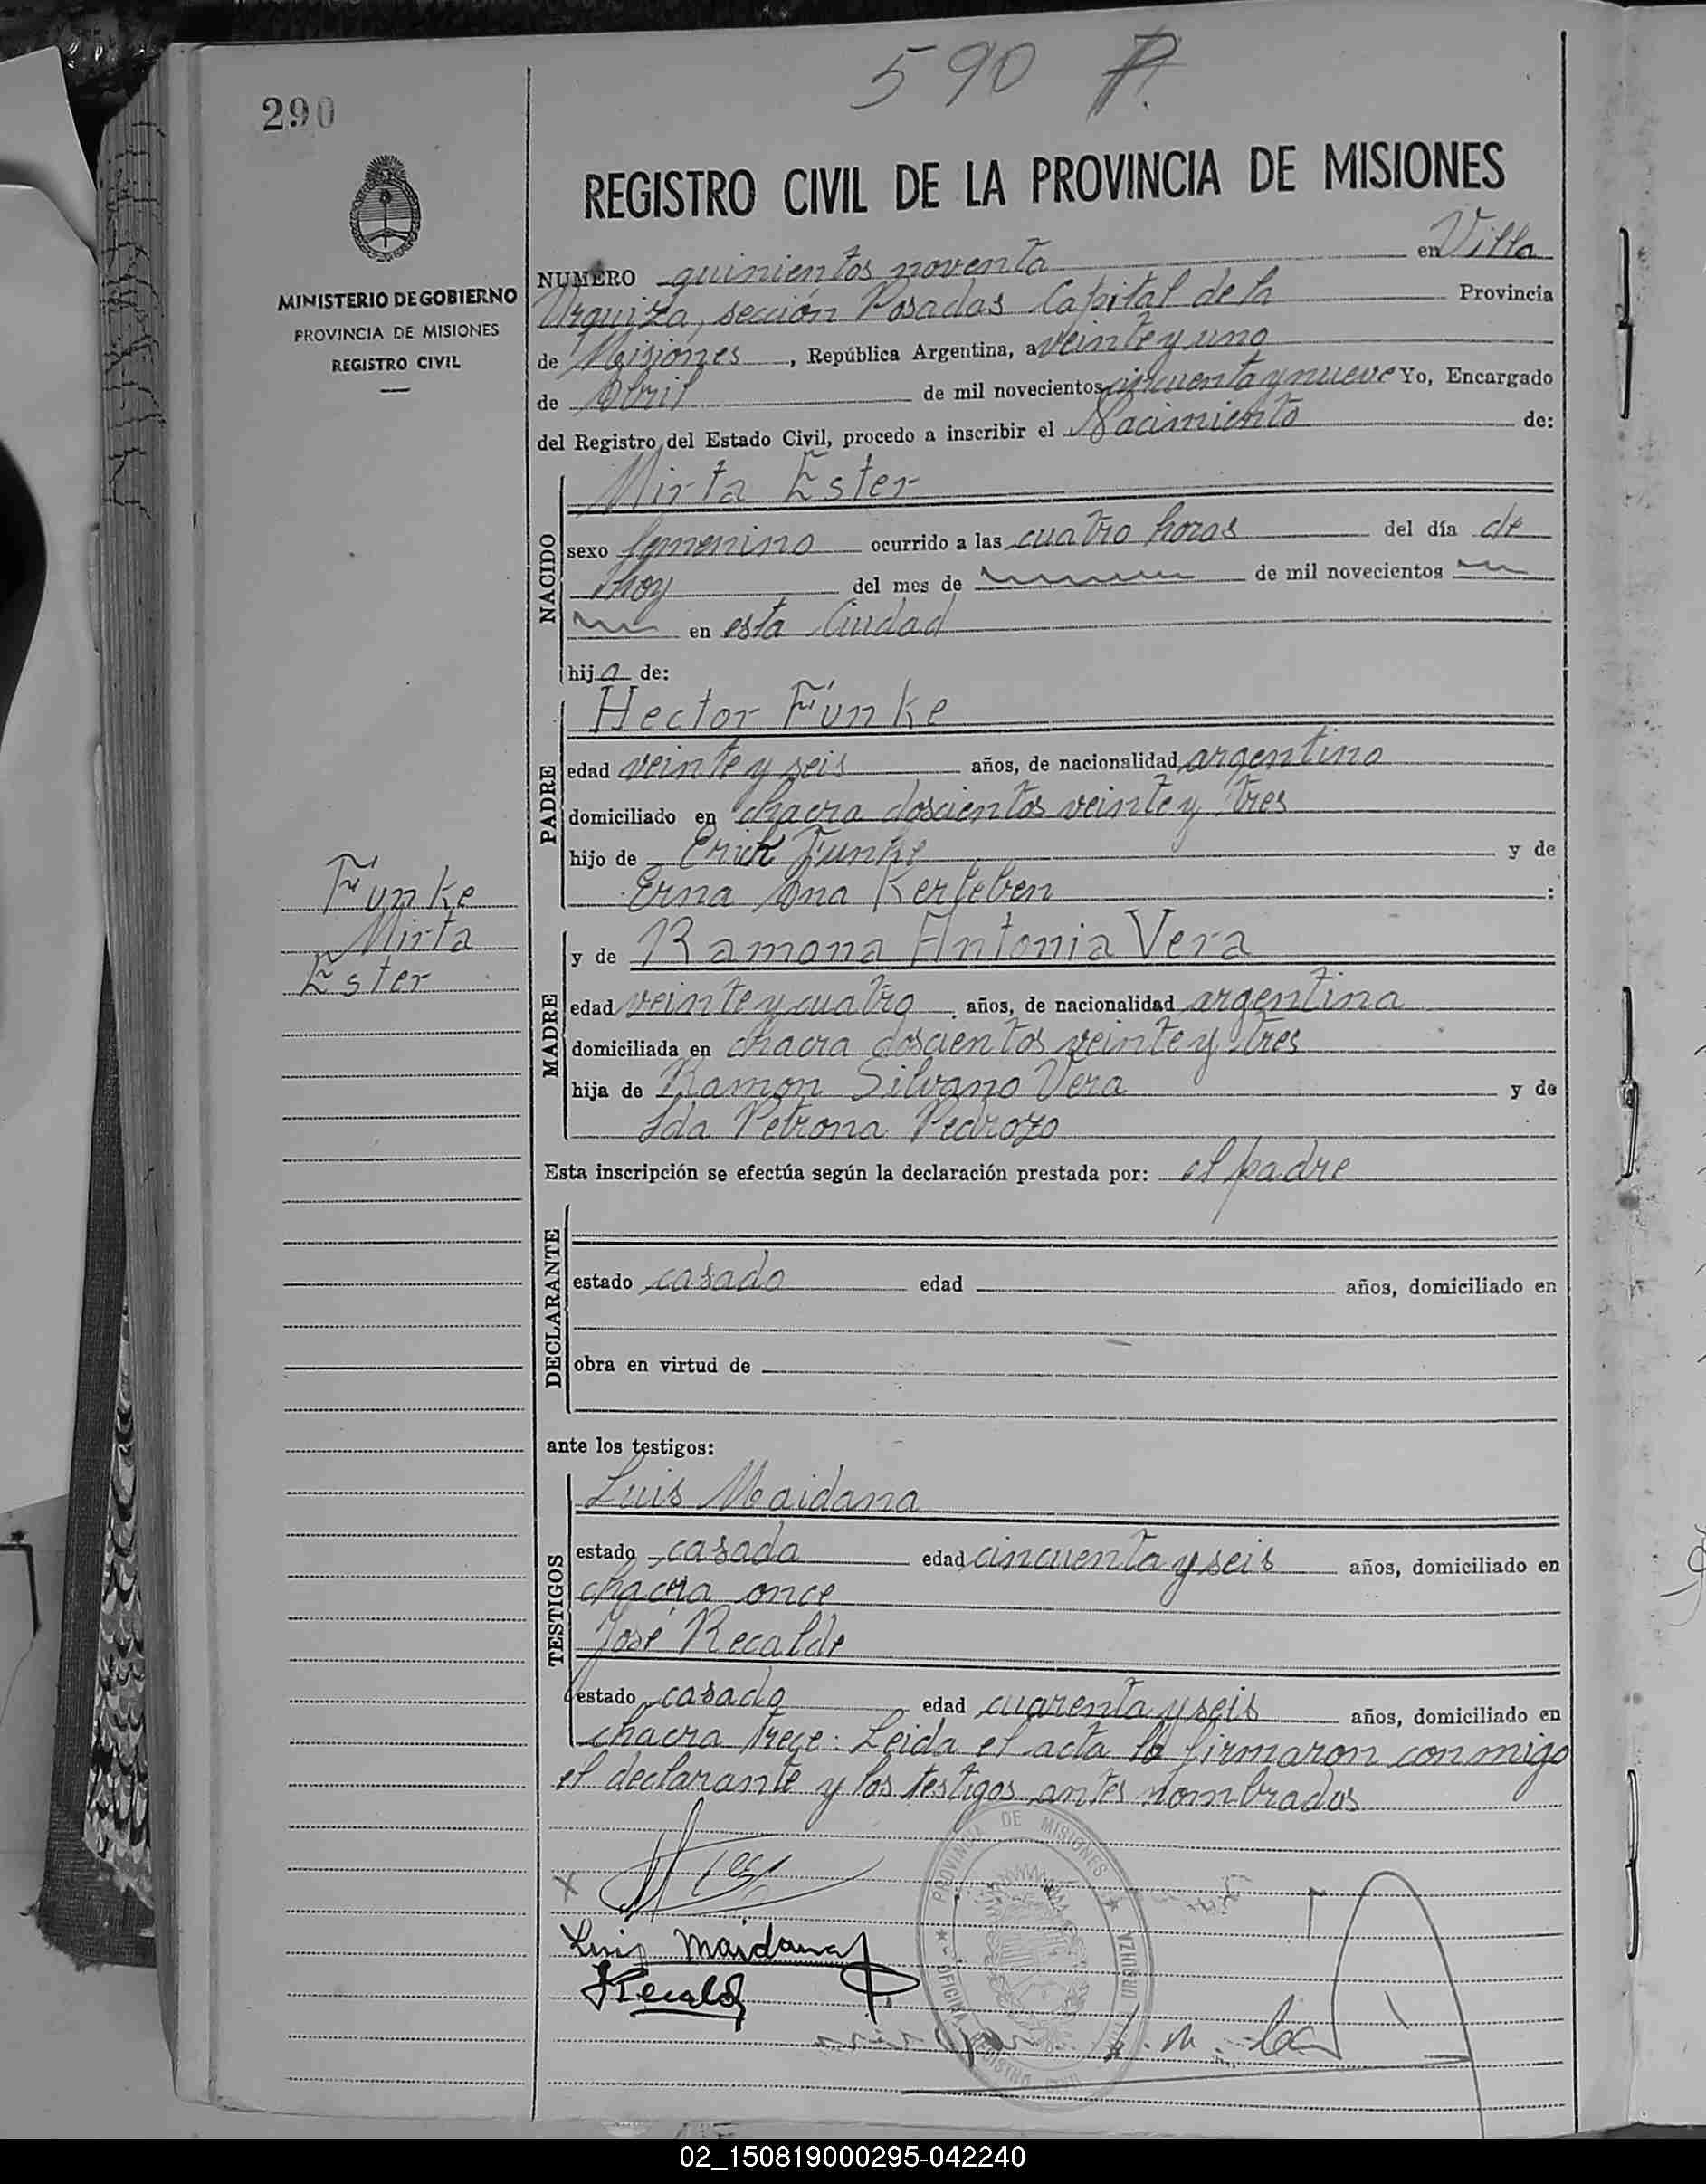 590 P.
290
REGISTRO CIVIL DE LA PROVINCIA DE MISIONES
MINISTERIO DE GOBIERNO
PROVINCIA DE MISIONES
REGISTRO CIVIL
NUMERO quinientos noventa en Villa
Urquiza, sección Posadas Capital de la Provincia
de Misiones, República Argentina, a veinte y uno
de Abril de mil novecientos cincuenta y nueve Yo, Encargado
del Registro del Estado Civil, procedo a inscribir el Nacimiento de:
NACIDO
Mirta Ester
sexo femenino ocurrido a las cuatro horas del día de
hoy del mes de de mil novecientos
en esta Ciudad
hija de:
PADRE
Hector Funke
edad veinte y seis años, de nacionalidad argentino
domiciliado en chacra doscientos veinte y tres
hijo de Erich Funke y de
Erna Ana Kerleben :
Funke
Mirta
Ester
MADRE
y de Ramona Antonia Vera
edad veinte y cuatro años, de nacionalidad argentina
domiciliada en chacra doscientos veinte y tres
hija de Ramon Silvano Vera y de
Ida Petrona Pedrozo
Esta inscripción se efectúa según la declaración prestada por: el padre
DECLARANTE
estado casado edad años, domiciliado en
obra en virtud de
ante los testigos:
TESTIGOS
Luis Maidana
estado casado edad cincuenta y seis años, domiciliado en
chacra once
José Recalde
estado casado edad cuarenta y seis años, domiciliado en
chacra trece: Leida el acta la firmaron conmigo
el declarante y los testigos antes nombrados
PROVINCIA DE MISIONES
Luis Maidana
JRecalde
02_150819000295-042240